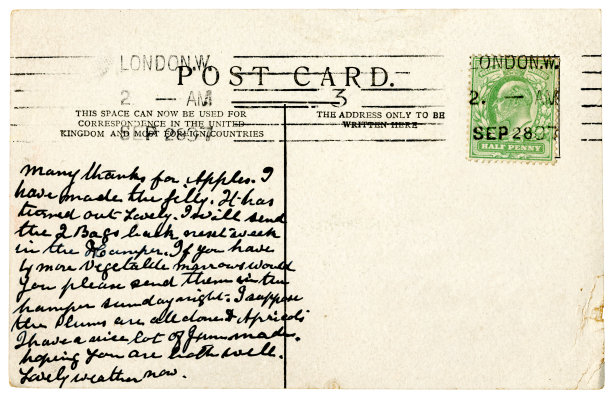 LONDON.W.
2. — AM
SEP 28 07
3
POST CARD.
THIS SPACE CAN NOW BE USED FOR
CORRESPONDENCE IN THE UNITED
KINGDOM AND MOST FOREIGN COUNTRIES
THE ADDRESS ONLY TO BE
WRITTEN HERE
LONDON.W.
2. — AM
SEP 28 07
HALF PENNY
Many thanks for Apples. I
have made the jelly. It has
turned out Lovely. I will send
the 2 Bags back next week
in the Hamper. If you have
y more Vegetable marrows would
you please send them in the
hamper sunday night. I suppose
the Plums are all done & Apricots
I have a nice lot of Jam made.
hoping you are both well.
Lovely weather now.